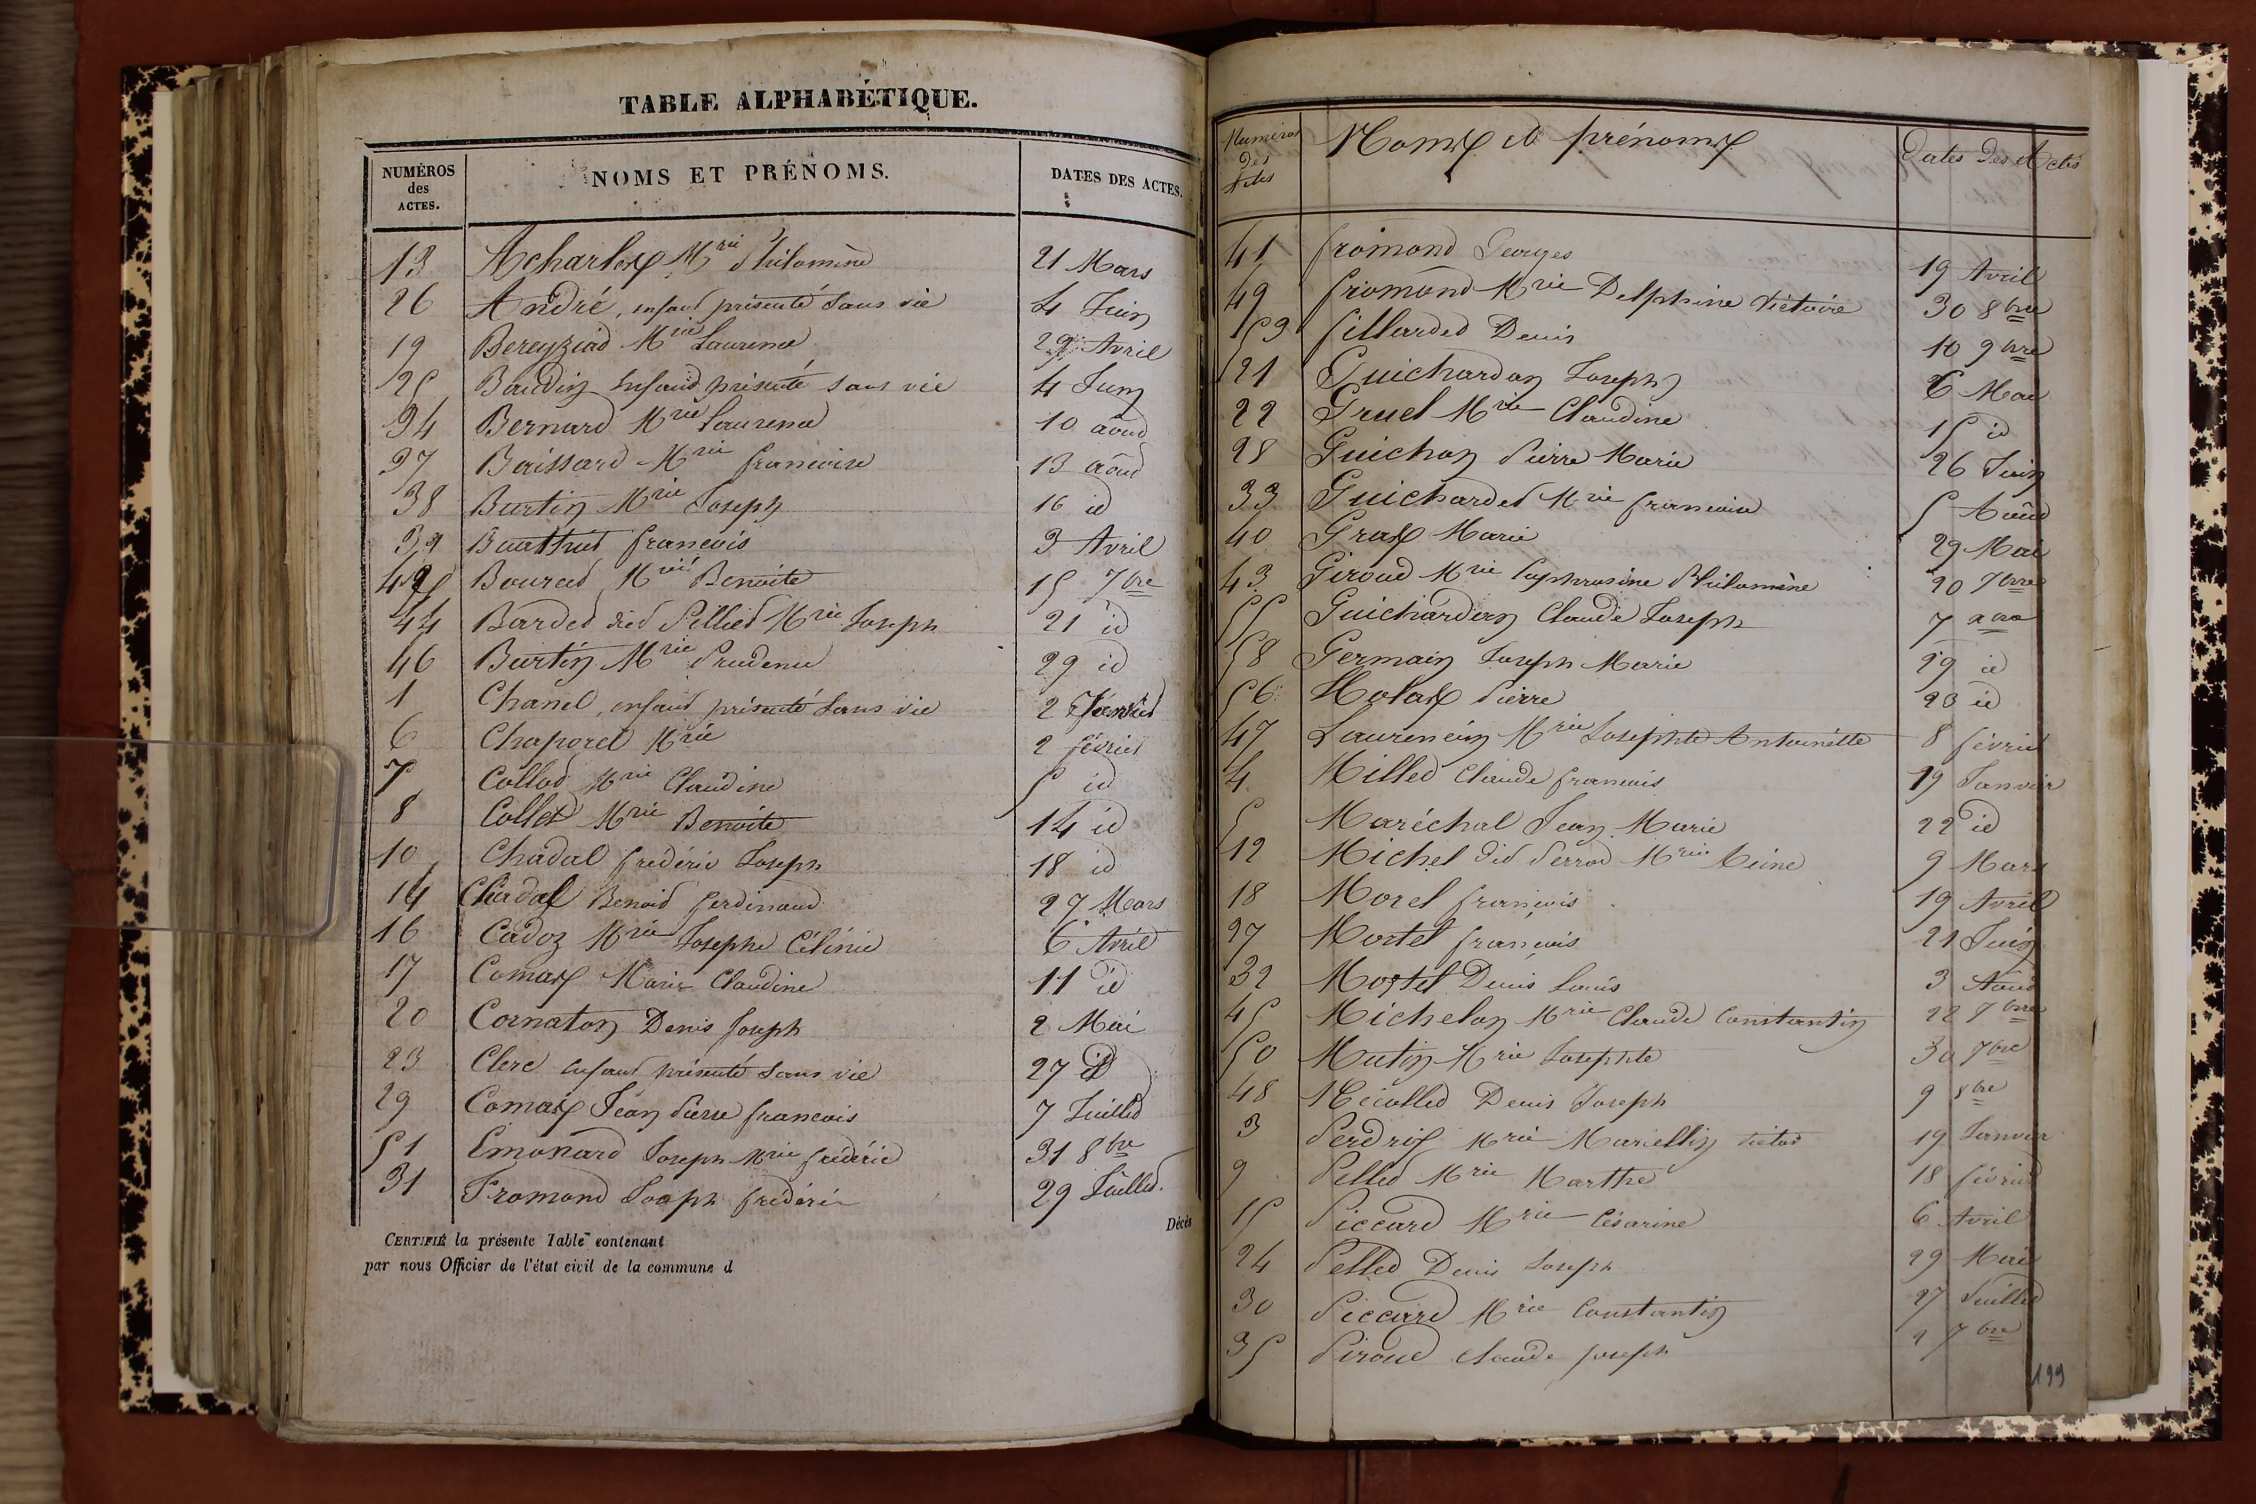 TABLE ALPHABÉTIQUE.
NUMÉROS des ACTES. NOMS ET PRÉNOMS. DATES DES ACTES.
13 Acharles Mrie Philomène 21 Mars
26 André, enfant présenté sans vie 4 Juin
19 Bereyziad Mrie Laurence 29 Avril
25 Baudin enfant présenté sans vie 4 Juin
34 Bernard Mrie Laurence 10 août
37 Boissard Mrie francoise 13 août
38 Burtin Mrie Joseph 16 id
39 francois 3 Avril
42 Mrie Benoite 15 7bre
44 Bardet dit Pelliet Mrie Joseph 21 id
46 Burtin Mrie Prudence 29 id
1 Chanel, enfant présenté sans vie 2 Janvier
6 Chaporel Mrie 2 février
7 Collod Mrie Claudine 5 id
8 Collet Mrie Benoite 14 id
10 Chadal frédéric Joseph 18 id
14 Chadal Benoid ferdinand 27 Mars
16 Cadoz Mrie Josephe Célénie 6 Avril
17 Comax Marie Claudine 11 id
20 Cornaton Denis Joseph 2 Mai
23 Clerc enfant présenté sans vie 27 id
29 Comax Jean Pierre francois 7 Juillet
51 Emonard Joseph Mrie frédéric 31 8bre
31 Fromond Joseph frédéric 29 Juillet
Décès
CERTIFIÉ la présente Table contenant
par nous Officier de l'état civil de la commune d
Numéros des Actes Noms et prénoms Dates des Actes
41 fromond Georges 19 Avril
49 fromond Mrie Delphine Victoire 30 8bre
53 fillardet Denis 10 9bre
21 Guichardon Joseph 6 Mai
22 Gruel Mrie Claudine 15 id
28 Guichon Pierre Marie 26 Juin
33 Guichardet Mrie francoise 5 Août
40 Grax Marie 29 Mai
43 Giroud Mrie Euphrosine Philomène 20 7bre
55 Guichardon Claude Joseph 7
58 Germain Joseph Marie 29 id
56 Pierre 20 id
47 Laurencin Mrie Josephte Antoinette 8 février
4 Millet Claude francois 19 Janvier
5 Maréchal Jean Marie 22 id
12 Michel dit Perrod Mrie 9 Mars
18 Morel francois 19 Avril
27 Mortel francois 21 Juin
32 Mortel Denis Louis 3 Août
45 Michelon Mrie Claude Constantin 22 7bre
50 Mutin Mrie Josephte 30 7bre
48 Denis Joseph 9 8bre
3 Perdrix Mrie Marcellin Victor 19 Janvier
9 Pellet Mrie Marthe 18 février
15 Piccard Mrie Césarine 6 Avril
24 Pellet Denis Joseph 29 Mai
30 Piccard Mrie Constantin 27 Juillet
35 Piroud Claude Joseph 2 7bre
199